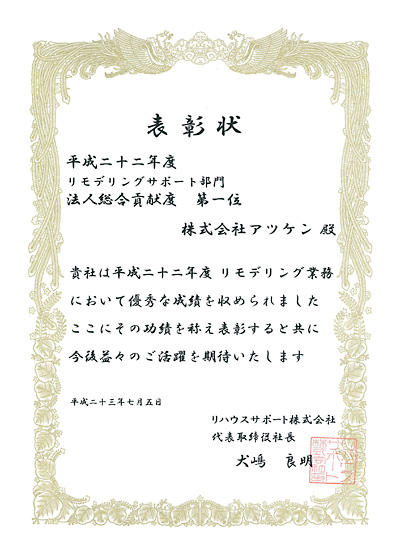 表彰状
平成二十二年度
リモデリングサポート部門
法人総合貢献度 第一位
株式会社アツケン 殿
貴社は平成二十二年度 リモデリング業務
において優秀な成績を収められました
ここにその功績を称え表彰すると共に
今後益々のご活躍を期待いたします
平成二十三年七月五日
リハウスサポート株式会社
代表取締役社長
犬嶋 良明